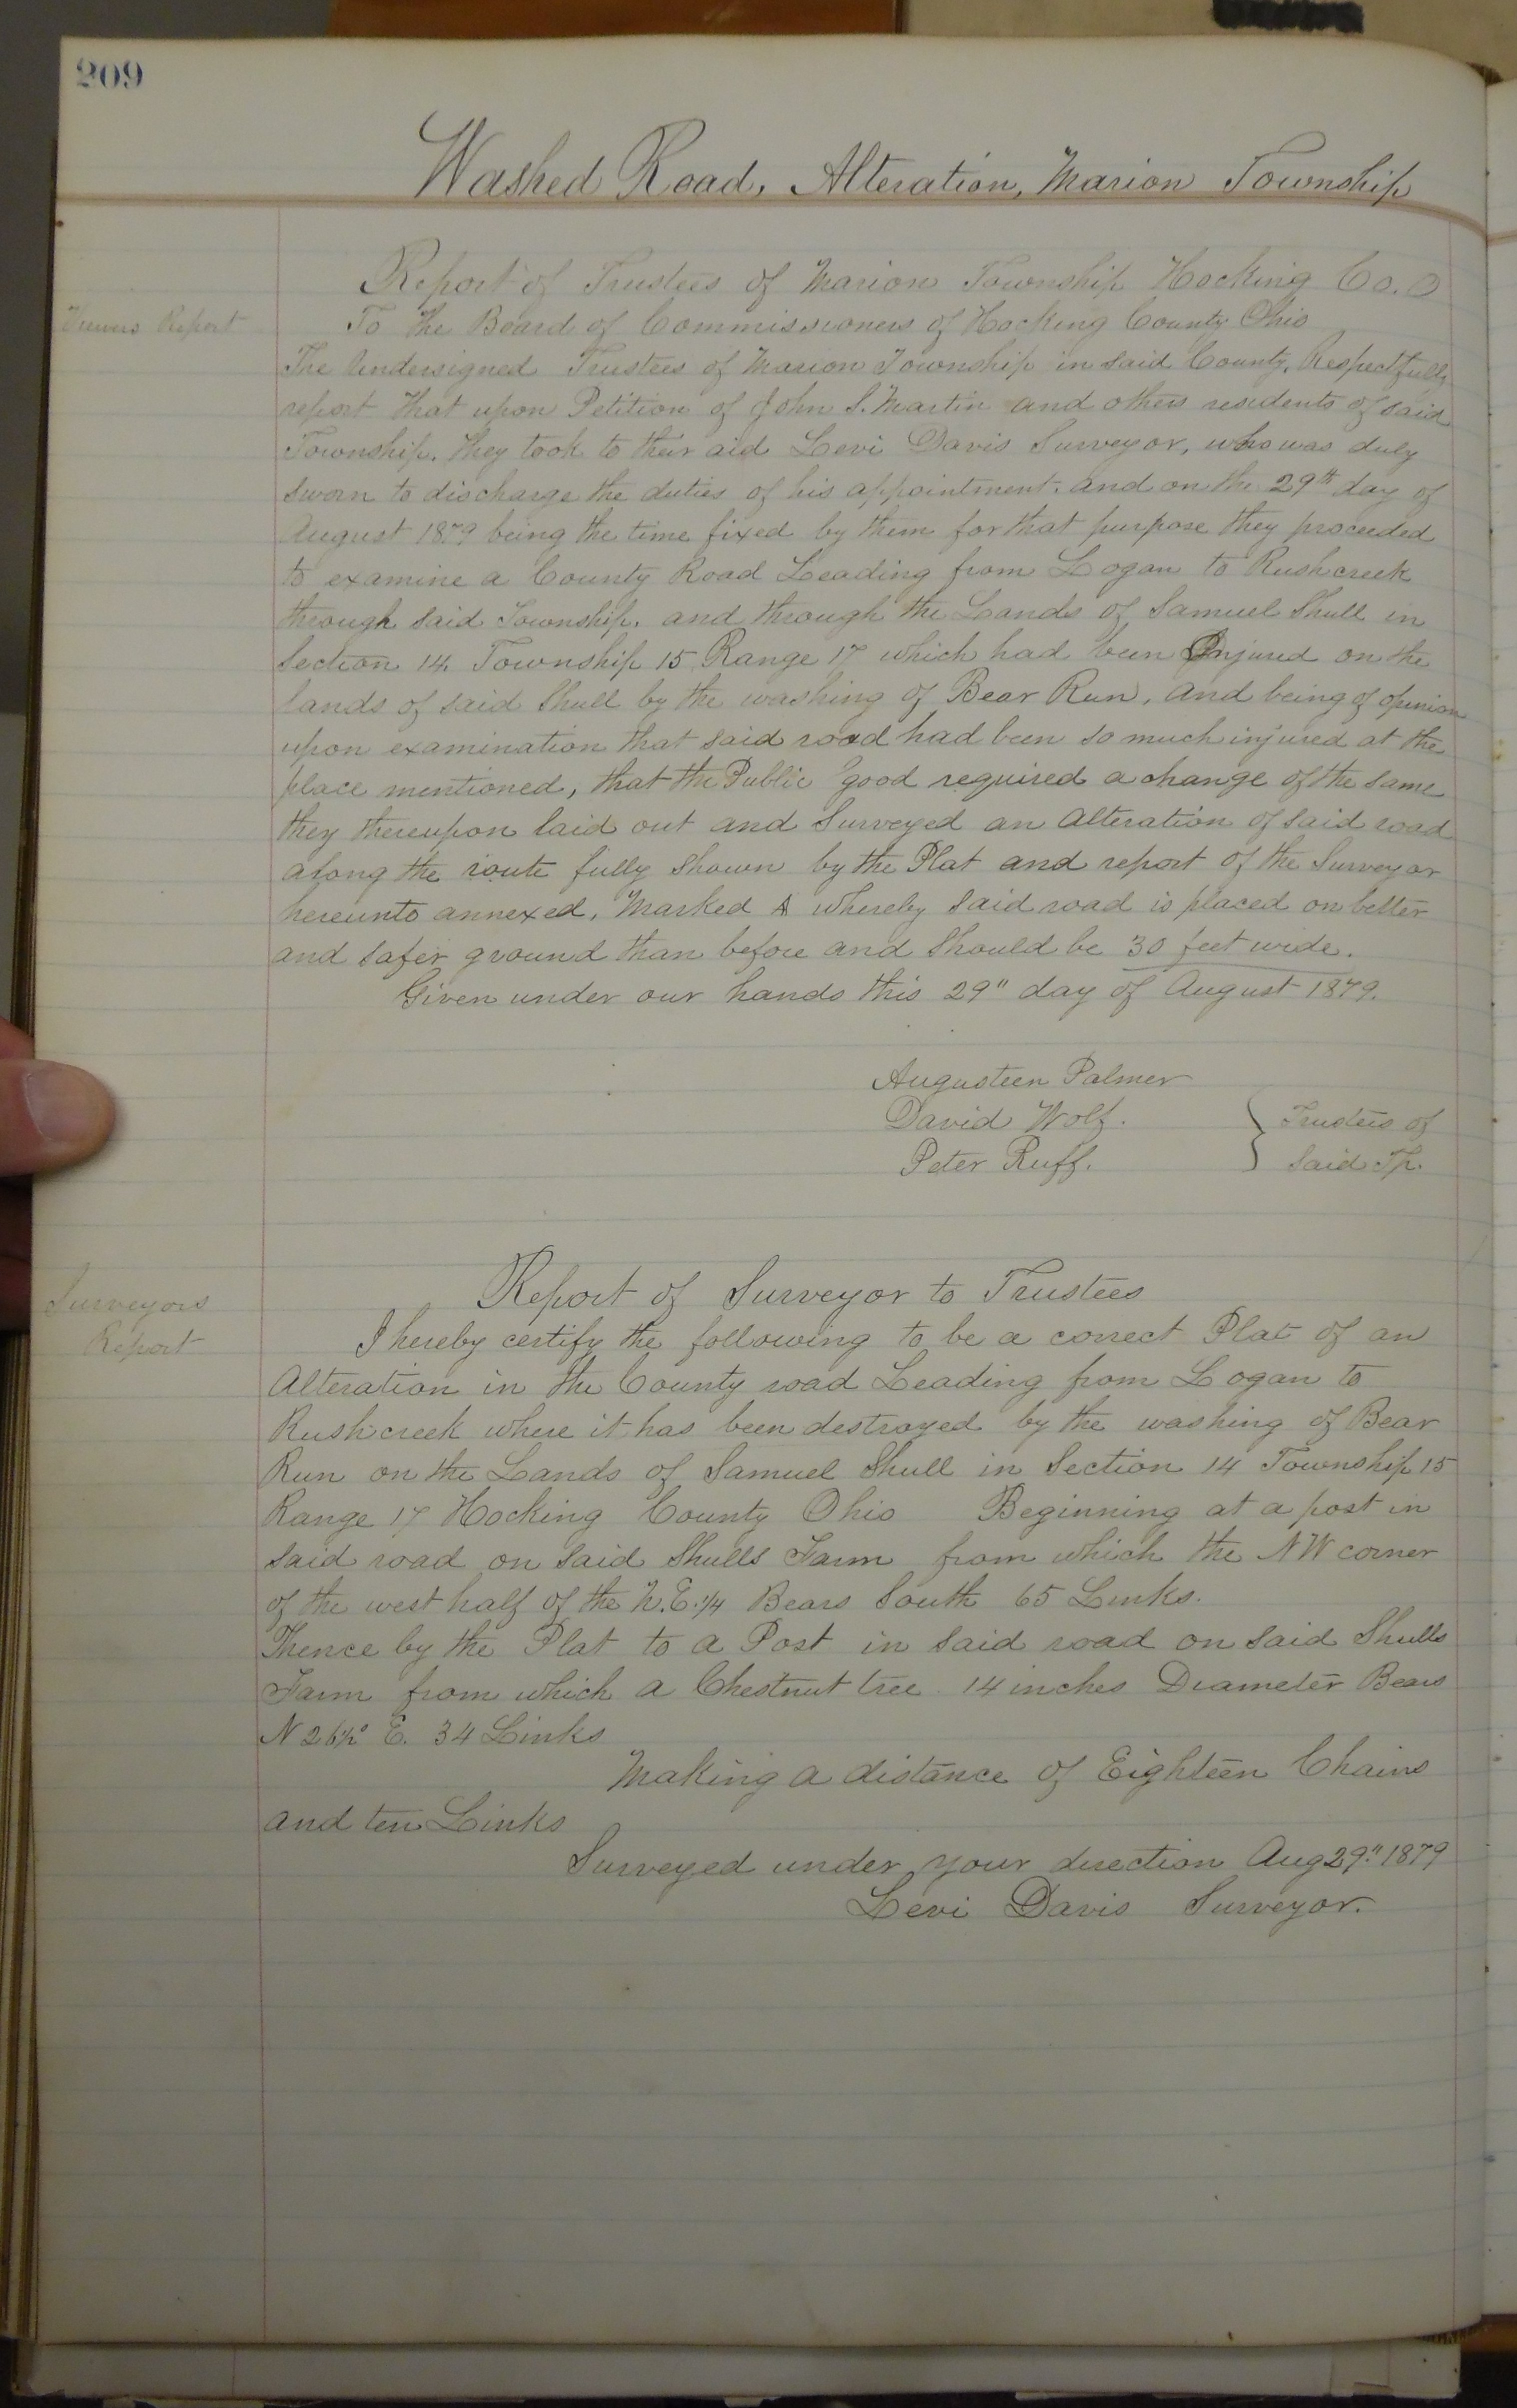 209
Washed Road, Alteration, Marion Township
Report of Trustees of Marion Township Hocking Co. O
Viewers Report
To the Board of Commissioners of Hocking County Ohio
The Undersigned Trustees of Marion Township in said County, Respectfully
report that upon Petition of John S. Martin and others residents of said
Township. they took to their aid Levi Davis Surveyor, who was duly
sworn to discharge the duties of his appointment. and on the 29th day of
August 1879 being the time fixed by them for that purpose they proceeded
to examine a County Road Leading from Logan to Rushcreek
through said Township. and through the Lands of Samuel Shull in
Section 14, Township 15 Range 17 which had been Injured on the
lands of said Shull by the washing of Bear Run, and being of opinion
upon examination that said road had been so much injured at the
place mentioned, that the Public good required a change of the same
they thereupon laid out and Surveyed an alteration of said road
along the route fully shown by the Plat and report of the Surveyor
hereunto annexed, Marked A whereby said road is placed on better
and safer ground than before and should be 30 feet wide.
Given under our hands this 29" day of August 1879.
Augusteen Palmer
David Wolf.
Peter Ruff.
} Trustees of
said Tp.
Report of Surveyor to Trustees
Surveyors
Report
I hereby certify the following to be a correct Plat of an
Alteration in the County road Leading from Logan to
Rushcreek where it has been destroyed by the washing of Bear
Run on the Lands of Samuel Shull in Section 14 Township 15
Range 17 Hocking County Ohio Beginning at a post in
said road on said Shulls Farm from which the NW corner
of the west half of the N.E. 1/4 Bears South 65 Links.
Thence by the Plat to a Post in said road on said Shulls
Farm from which a Chestnut tree 14 inches Diameter Bears
N 26½° E. 34 Links
Making a distance of Eighteen Chains
and ten Links
Surveyed under your direction Aug 29" 1879
Levi Davis Surveyor.